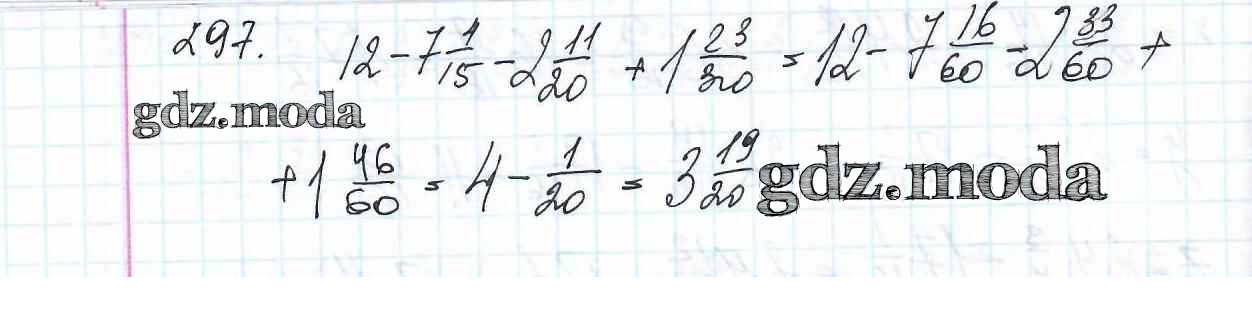 297. 12 - 7 1/15 - 2 11/20 + 1 23/30 = 12 - 7 16/60 - 2 33/60 +
gdz.moda
+ 1 46/60 = 4 - 1/20 = 3 19/20 gdz.moda